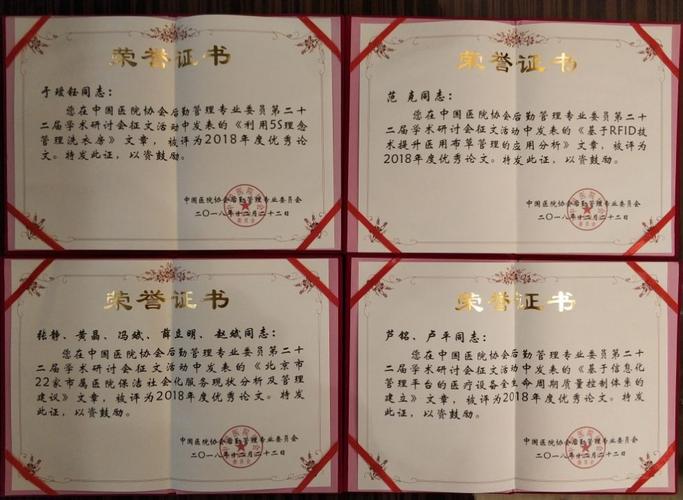 荣誉证书
于瑷钰同志：
您在中国医院协会后勤管理专业委员第二十
二届学术研讨会征文活动中发表的《利用5S理念
管理洗衣房》文章，被评为2018年度优秀论
文。特发此证，以资鼓励。
中国医院协会后勤管理专业委员会
二〇一八年十二月二十二日
荣誉证书
范克同志：
您在中国医院协会后勤管理专业委员第二十
二届学术研讨会征文活动中发表的《基于RFID技
术提升医用布草管理的应用分析》文章，被评为
2018年度优秀论文。特发此证，以资鼓励。
中国医院协会后勤管理专业委员会
二〇一八年十二月二十二日
荣誉证书
张静、黄晶、冯斌、薛立明、赵斌同志：
您在中国医院协会后勤管理专业委员第二十
二届学术研讨会征文活动中发表的《北京市
22家市属医院保洁社会化服务现状分析及管理
建议》文章，被评为2018年度优秀论文。特发
此证，以资鼓励。
中国医院协会后勤管理专业委员会
二〇一八年十二月二十二日
荣誉证书
芦铭、卢平同志：
您在中国医院协会后勤管理专业委员第二十
二届学术研讨会征文活动中发表的《基于信息化
管理平台的医疗设备全生命周期质量控制体系的
建立》文章，被评为2018年度优秀论文。特发
此证，以资鼓励。
中国医院协会后勤管理专业委员会
二〇一八年十二月二十二日